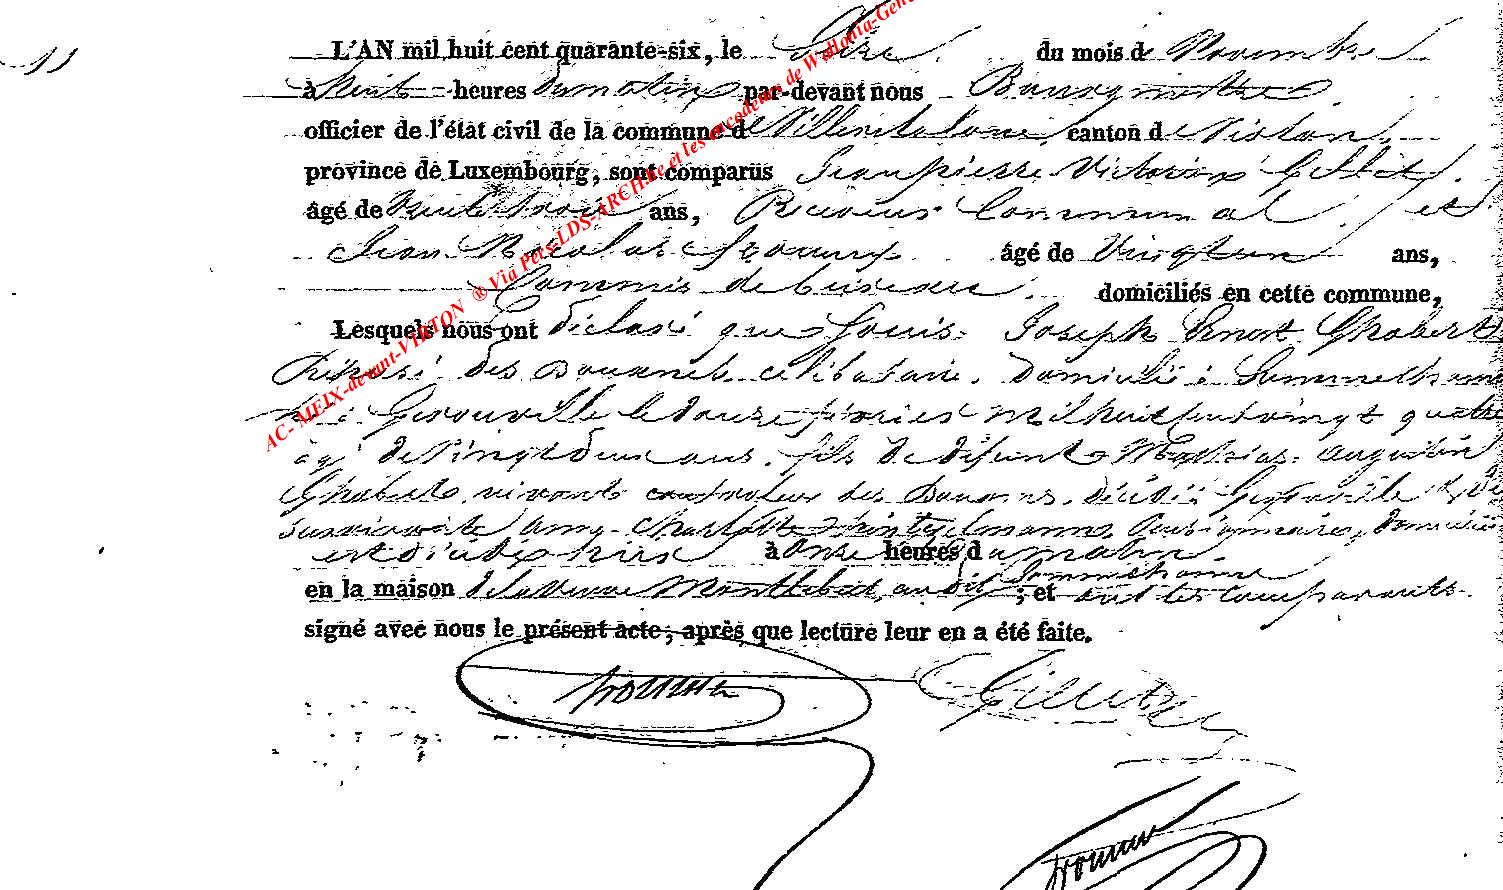 11
L'AN mil huit cent quarante-six, le Seize du mois de Novembre
à huit heures du matin par-devant nous Bourgmestre
officier de l'état civil de la commune de Villers la loue canton de Virton,
province de Luxembourg, sont comparus Jean pierre Victorin Gillet,
âgé de trente trois ans, Receveur Communal, et
Jean Nicolas âgé de Vingt un ans,
Commis de bureau. domiciliés en cette commune,
Lesquels nous ont déclaré que Louis Joseph Ernest Chabert
Préposé des Douanes, célibataire, domicilié à Sommethonne
né à Gérouville le douze mil huit cent vingt quatre
âgé de Vingt deux ans, fils de défunt Mathias augustin
Chabert, vivant controleur des Douanes, décédé à Gérouville &
survivante Charlotte domiciliée
est décédé hier à onze heures du matin
en la maison de la Veuve au dit Sommethonne ; et ont les comparants
signé avec nous le présent acte, après que lecture leur en a été faite.
Gillet
AC- MEIX-devant-VIRTON ® Via Pers-LDS-ARCH.be et les encodeurs de Wallonia-Gene